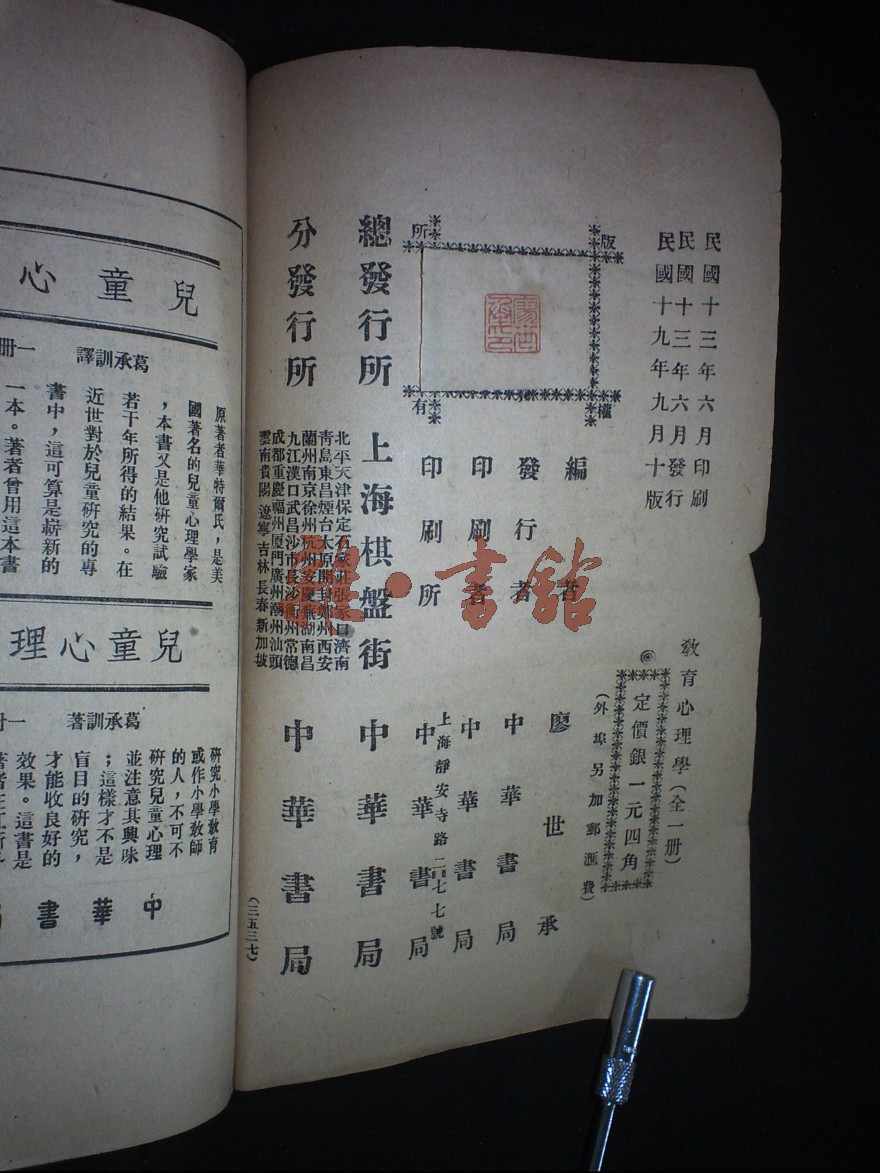 民國十三年六月印刷
民國十三年六月發行
民國十九年九月十版
教育心理學(全一册)
◎定價銀一元四角
(外埠另加郵匯費)
版權所有
編者 廖世承
發行者 中華書局
印刷者 中華書局
印刷所 中華書局
上海靜安寺路二七七號
總發行所 上海棋盤街 中華書局
分發行所 中華書局
北平天津保定石家莊張家口濟南
靑島東昌煙台太原開封鄭州西安
蘭州南京徐州杭州安慶蕪湖南昌
九江漢口武昌沙市長沙衡州常德
成都重慶福州厦門廣州潮州汕頭
雲南貴陽遼寧吉林長春新加坡
(三五三七)
書舘
兒童心
葛承訓譯 一册
原著者華特爾氏,是美
國著名的兒童心理學家
,本書又是他硏究試驗
若干年所得的結果。在
近世對於兒童硏究的專
書中,這可算是嶄新的
一本。著者曾用這本書
兒童心理
葛承訓著 一
硏究小學敎育
或作小學敎師
的人,不可不
硏究兒童心理
並注意其興味
;這樣才不是
盲目的硏究,
才能收良好的
效果。這書是
中華書